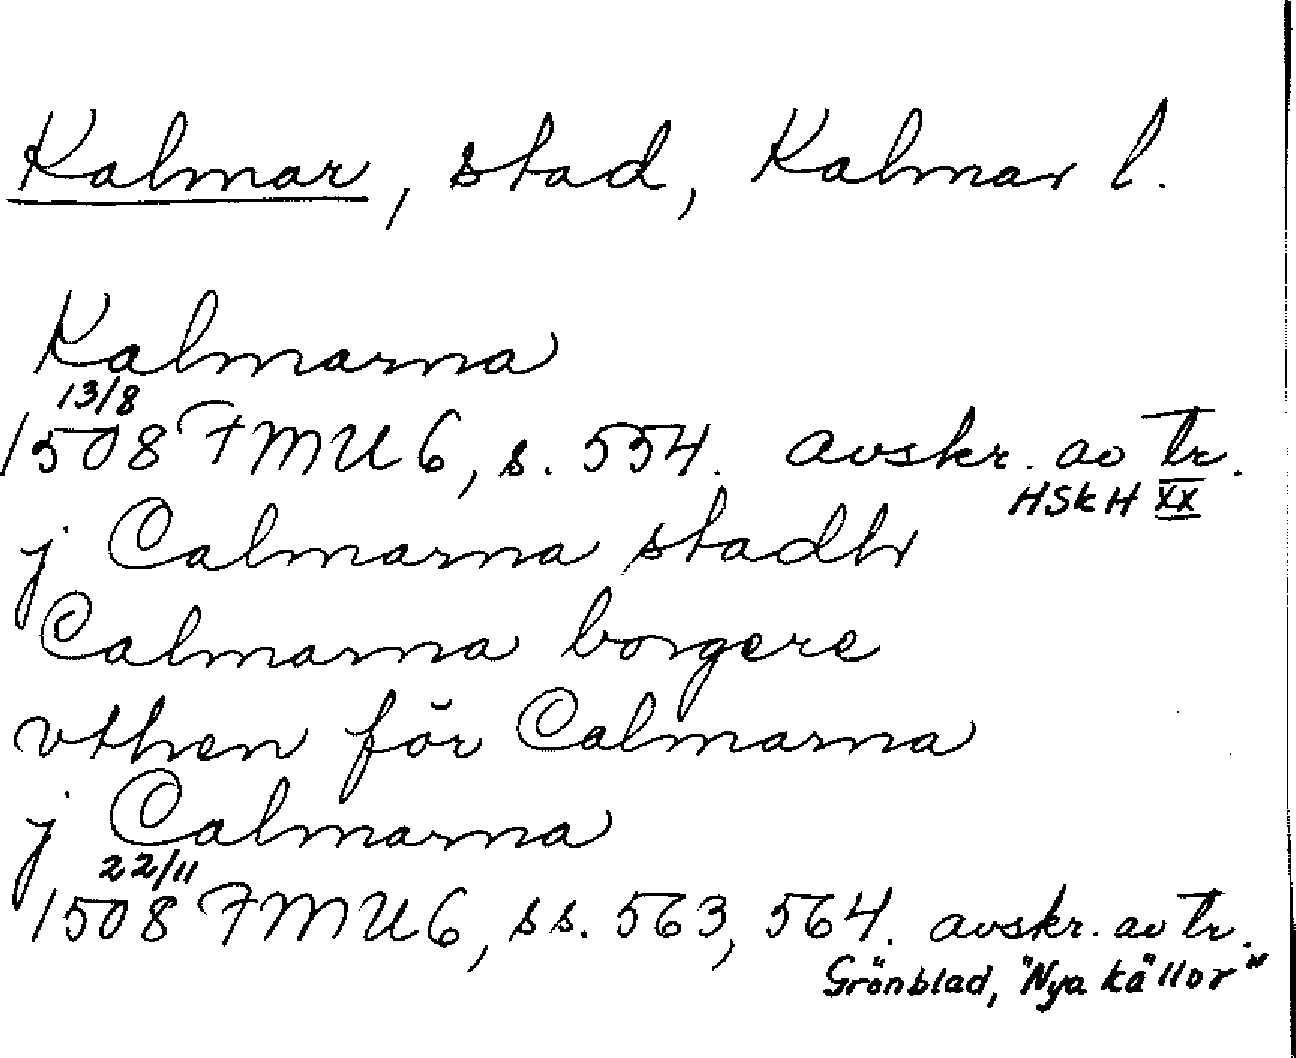 Kalmar, stad, Kalmar l.
Kalmarna
13/8
1508 FMU 6, s. 554. avskr. av tr.
HSkH XX
j Calmarna stadh
Calmarna borgere
vthen för Calmarna
j Calmarna
22/11
1508 FMU 6, ss. 563, 564. avskr. av tr.
Grönblad, "Nya källor"